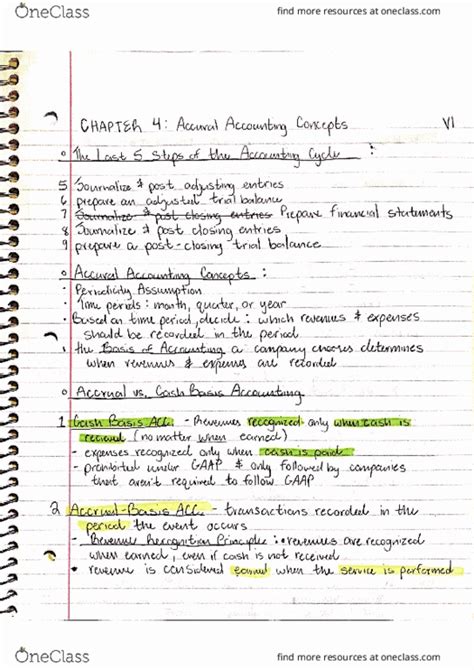 OneClass
find more resources at oneclass.com
CHAPTER 4: Accural Accounting Concepts VI
The Last 5 Steps of the Accounting Cycle :
5 Journalize & post adjusting entries
6 prepare an adjusted trial balance
7 Journalize & post closing entries Prepare financial statements
8 Journalize & post closing entries
9 prepare a post-closing trial balance
Accural Accounting Concepts :
· Periodicity Assumption
· Time periods : month, quarter, or year
· Based on time period, decide : which revenues & expenses
should be recorded in the period
· the Basis of Accounting a company chooses determines
when revenues & expenses are recorded
Accrual vs. Cash Basis Accounting
1 Cash Basis ACC. - Revenues recognized only when cash is
recieved (no matter when earned)
- expenses recognized only when cash is paid
- prohibited under GAAP & only followed by companies
that aren't required to follow GAAP
2 Accrual-Basis ACC - transactions recorded in the
period the event occurs
- Revenue Recognition Principle : • revenues are recognized
when earned, even if cash is not received
• revenue is considered earned when the service is performed
OneClass
find more resources at oneclass.com